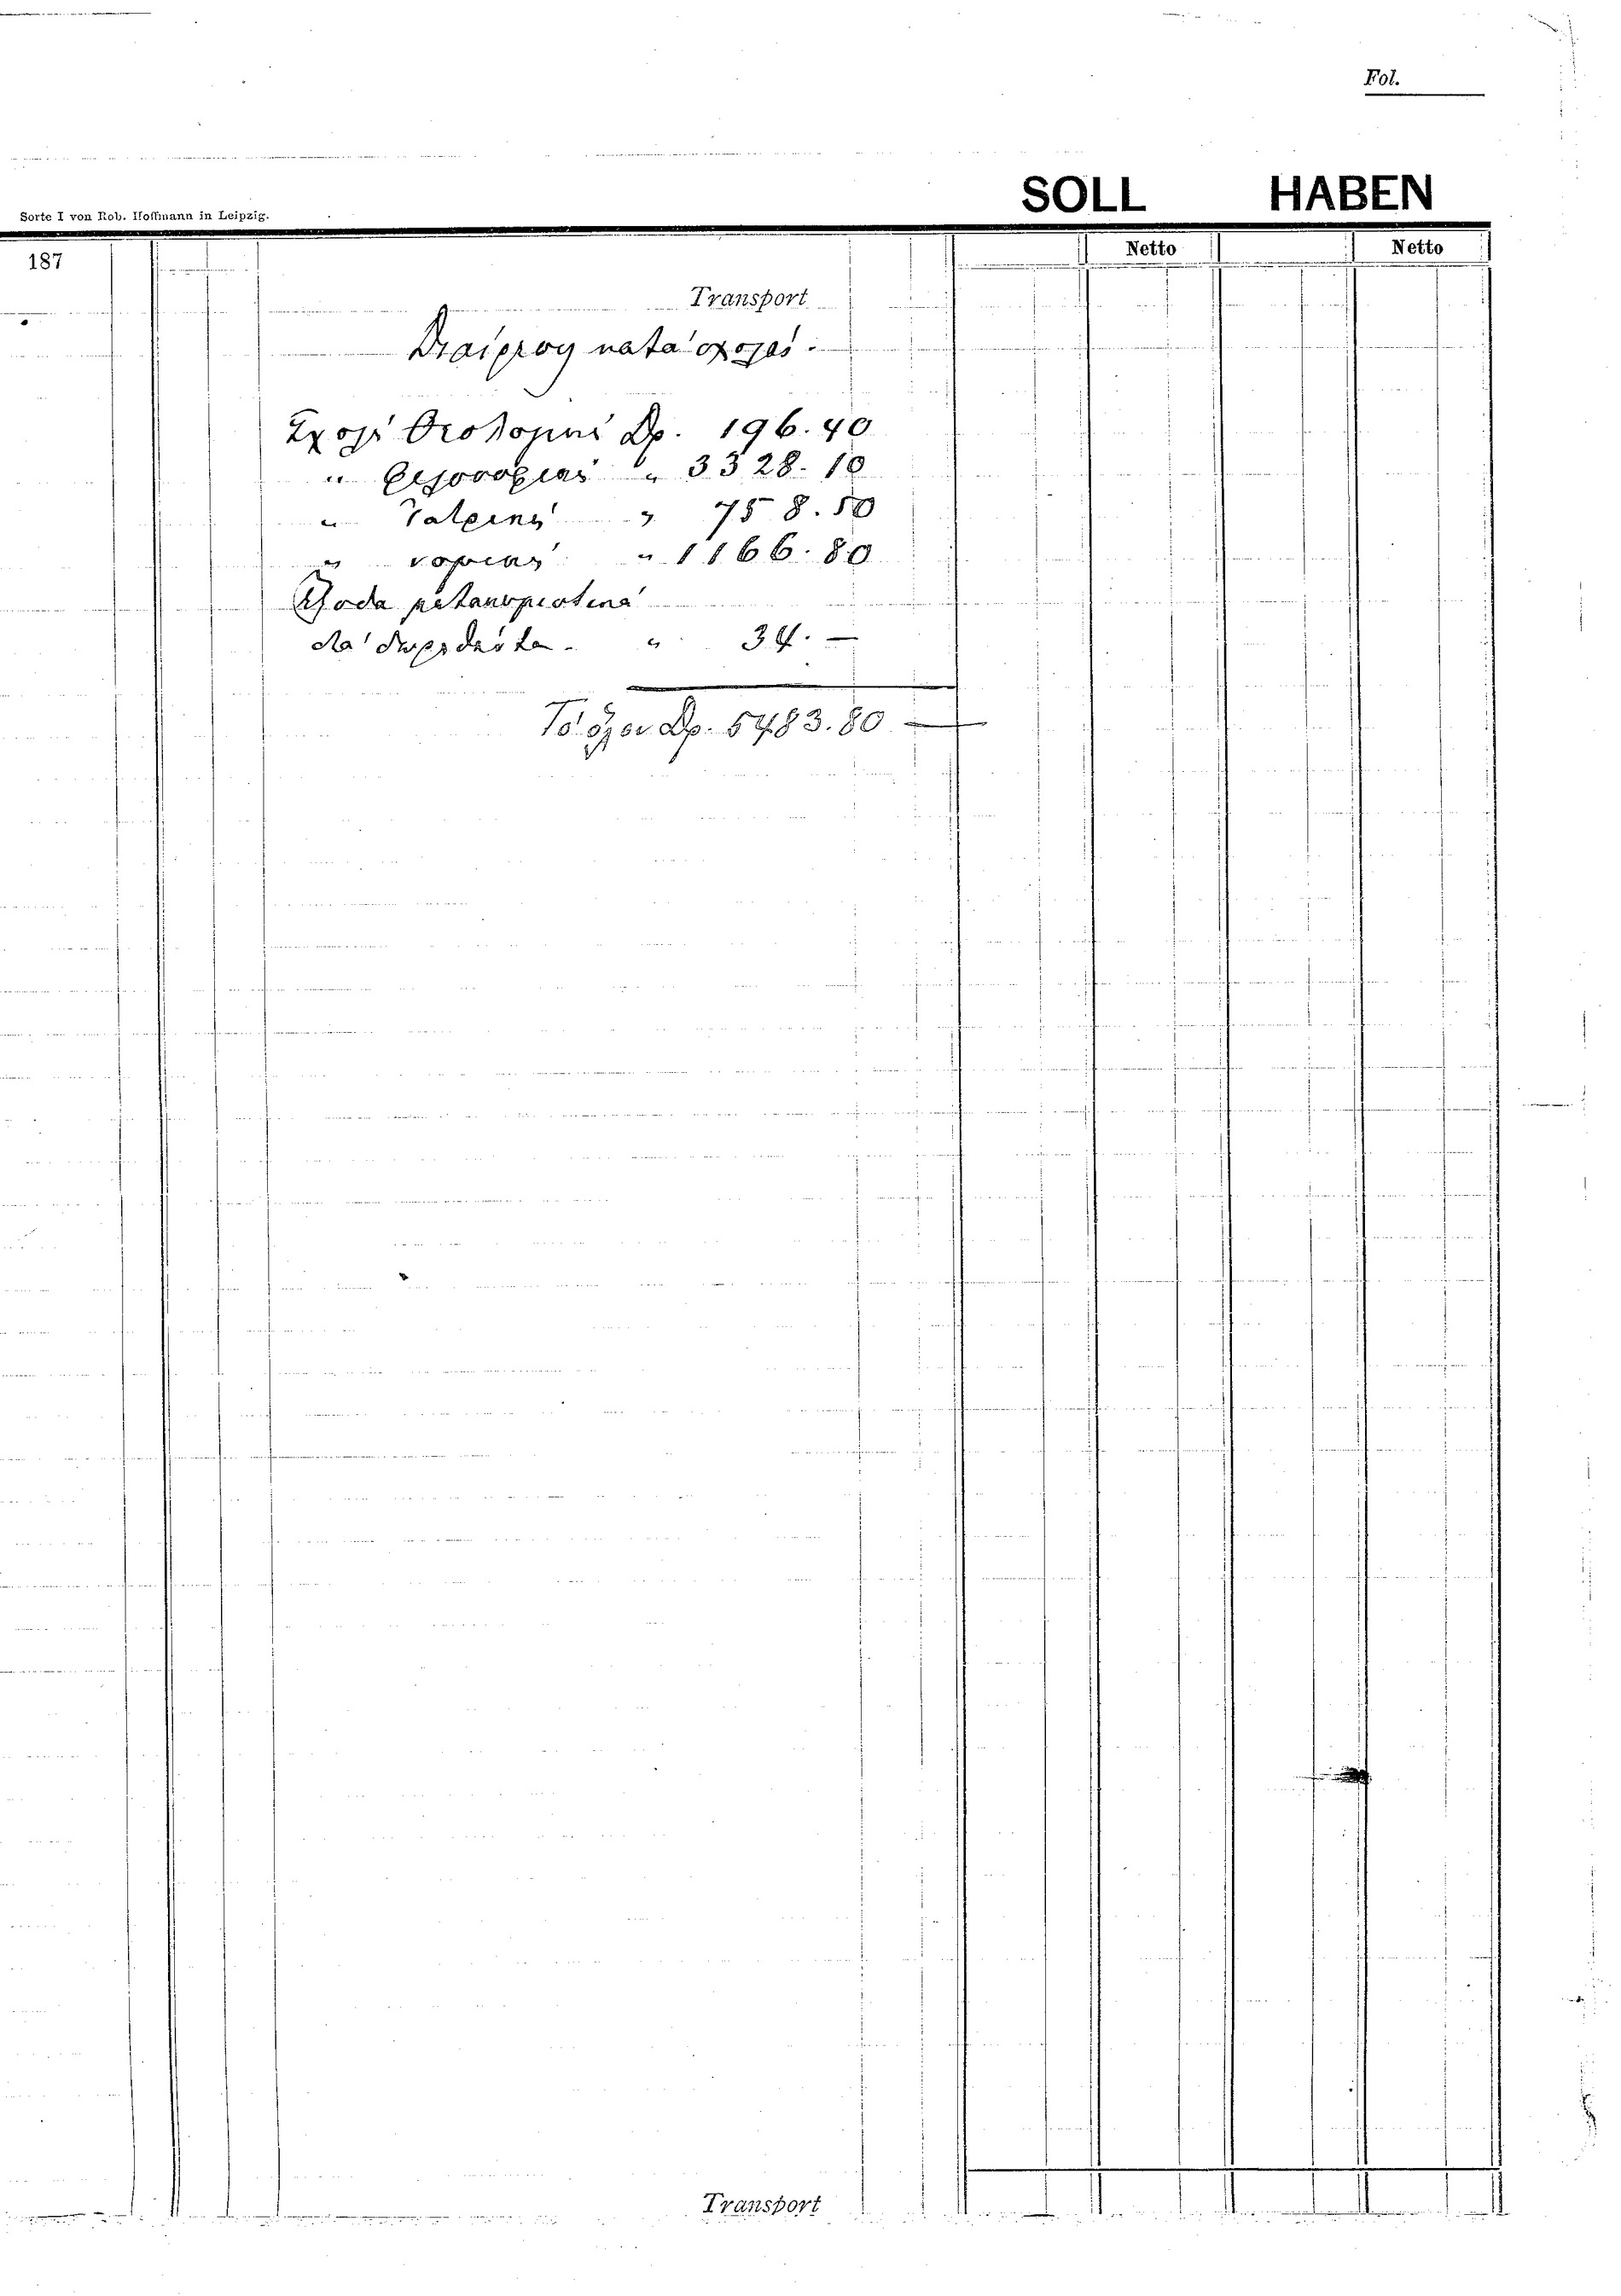 Fol.
SOLL HABEN
Sorte I von Rob. Hoffmann in Leipzig.
Netto Netto
187
Transport
Διαίρεσις κατά σχολάς.
Σχολή Θεολογική Δρ. 196.40
" Φιλοσοφίας " 3328.10
" Ἰατρικῆς " 758.50
" νομικῆς " 1166.80
Ἔξοδα
διά " 34.—
Τό ὅλον Δρ. 5483.80
Transport